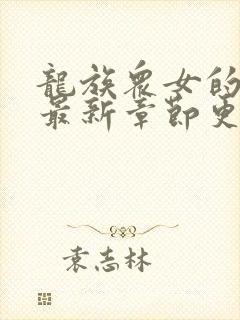 龍族眾女的
最新章節更
袁志林